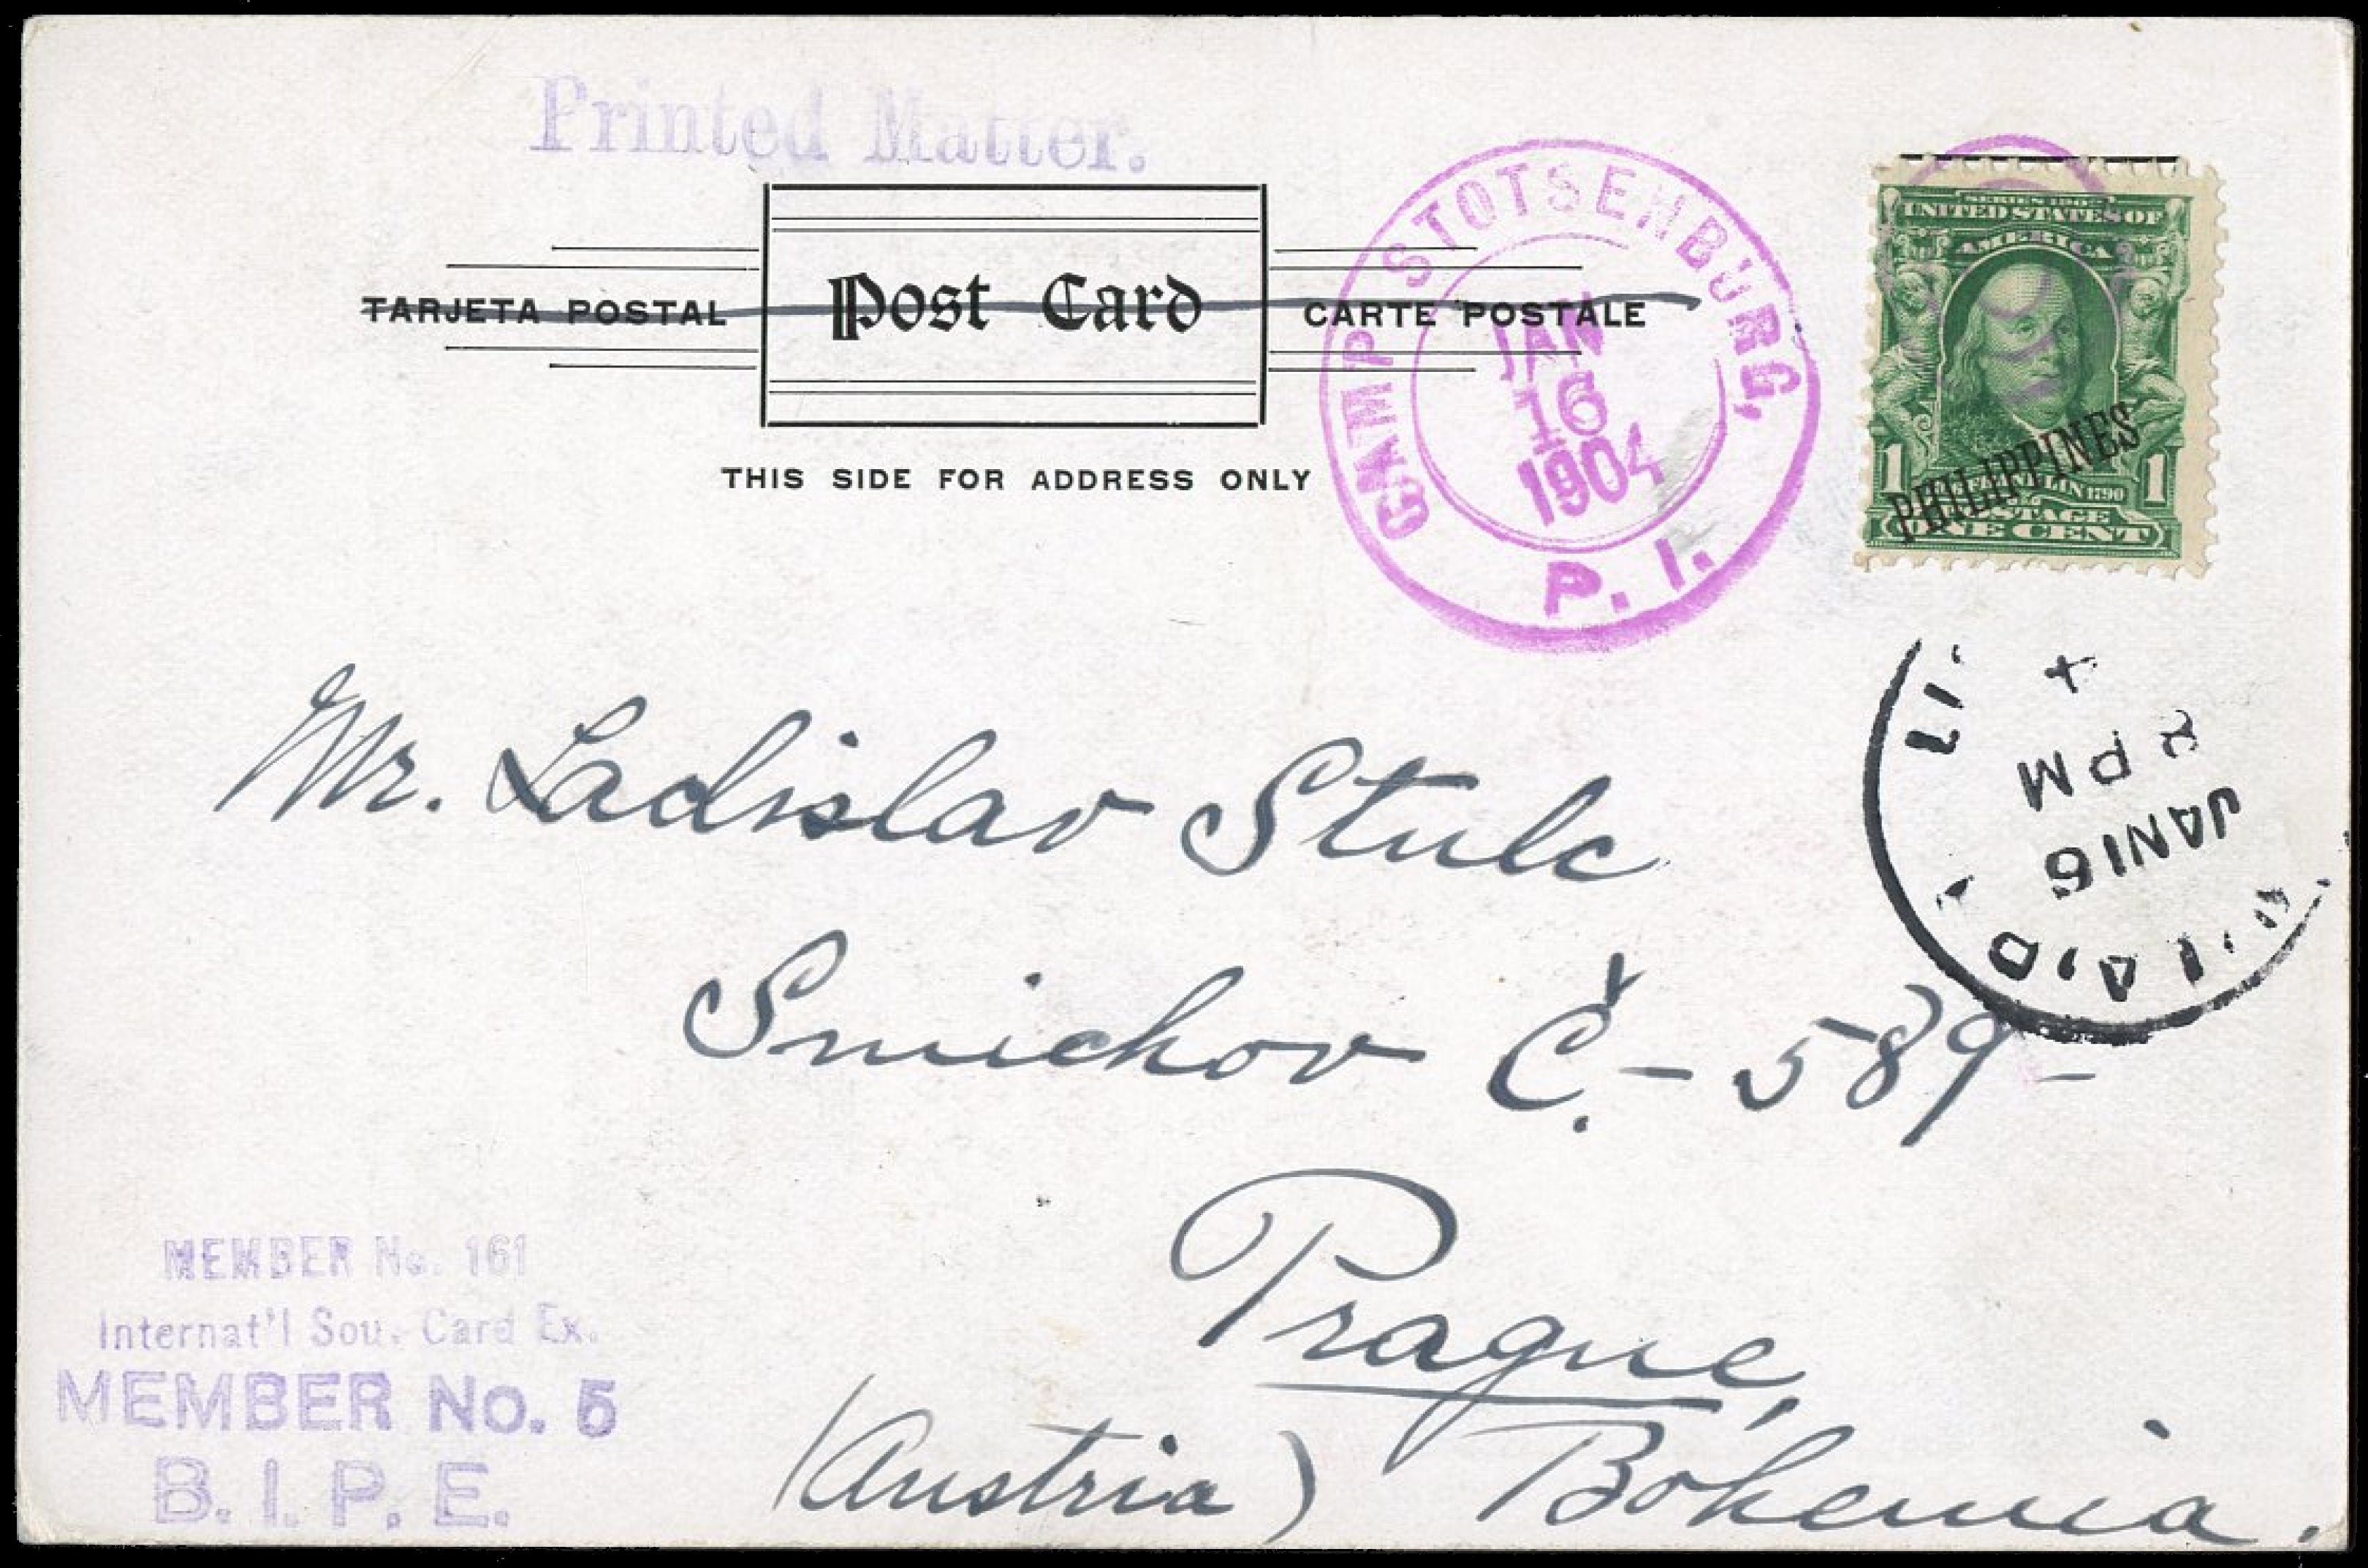 Printed Matter.
TARJETA POSTAL Post Card CARTE POSTALE
THIS SIDE FOR ADDRESS ONLY
CAMP STOTSENBURG,
JAN
16
1904
P. I.
SERIES 1902
UNITED STATES OF
AMERICA
PHILIPPINES
1 FRANKLIN 1790 1
POSTAGE
ONE CENT
JAN 16
2 PM
Mr. Ladislav Stulc
Smichov Č. - 589 -
Prague,
(Austria) Bohemia.
MEMBER No. 161
Internat'l Sou. Card Ex.
MEMBER No. 5
B. I. P. E.